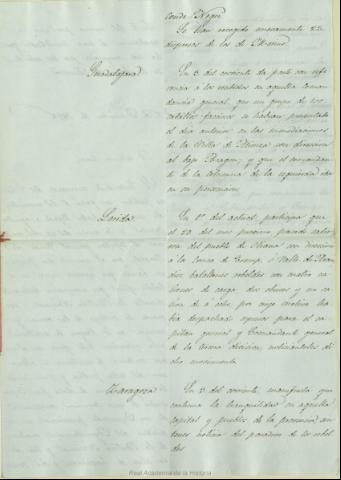 conde Negri
Se han recogido nuevamente 22
dispersos de los de Obando
Guadalajara
En 3 del corriente da parte con refe
rencia a los recibidos en aquella coman
dancia general, que un grupo de 100
caballos facciosos se habian presentado
el dia anterior en las inmediaciones
de la Villa de Atienza con direccion
al bajo Aragon, y que el comandan
te de la columna de la izquierda iba
en su persecucion
Lerida
En 1º del actual, participa que
el 28 del mes proximo pasado salie
ron del pueblo de Oliana con direccion
a la Conca de Tremp, ó Valle de Aran
dos batallones rebeldes con cuatro ca
ñones de carga, dos obuses y un ca
ñon de a ocho por cuyo motivo ha
bia despachado espresos para el ca
pitan general y Comandante general
de la tercera division noticiandoles di
cho movimiento
Zaragoza
En 3 del corriente, manifiesta que
continua la tranquilidad en aquella
capital y pueblos de la provincia, sin
tener noticia del paradero de los rebel
des
Real Academia de la Historia